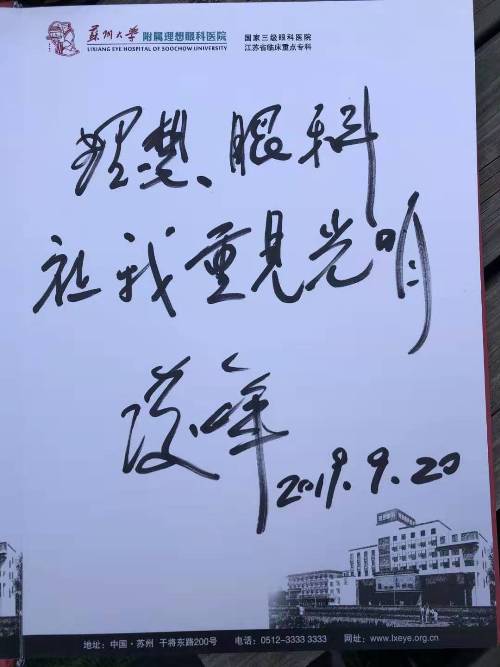 蘇州大學 附属理想眼科医院
LIXIANG EYE HOSPITAL OF SOOCHOW UNIVERSITY
国家三级眼科医院
江苏省临床重点专科
理想眼科
让我重见光明
峰
2019.9.20
地址：中国·苏州 干将东路200号 电话：0512-3333 3333 网址：www.lxeye.org.cn